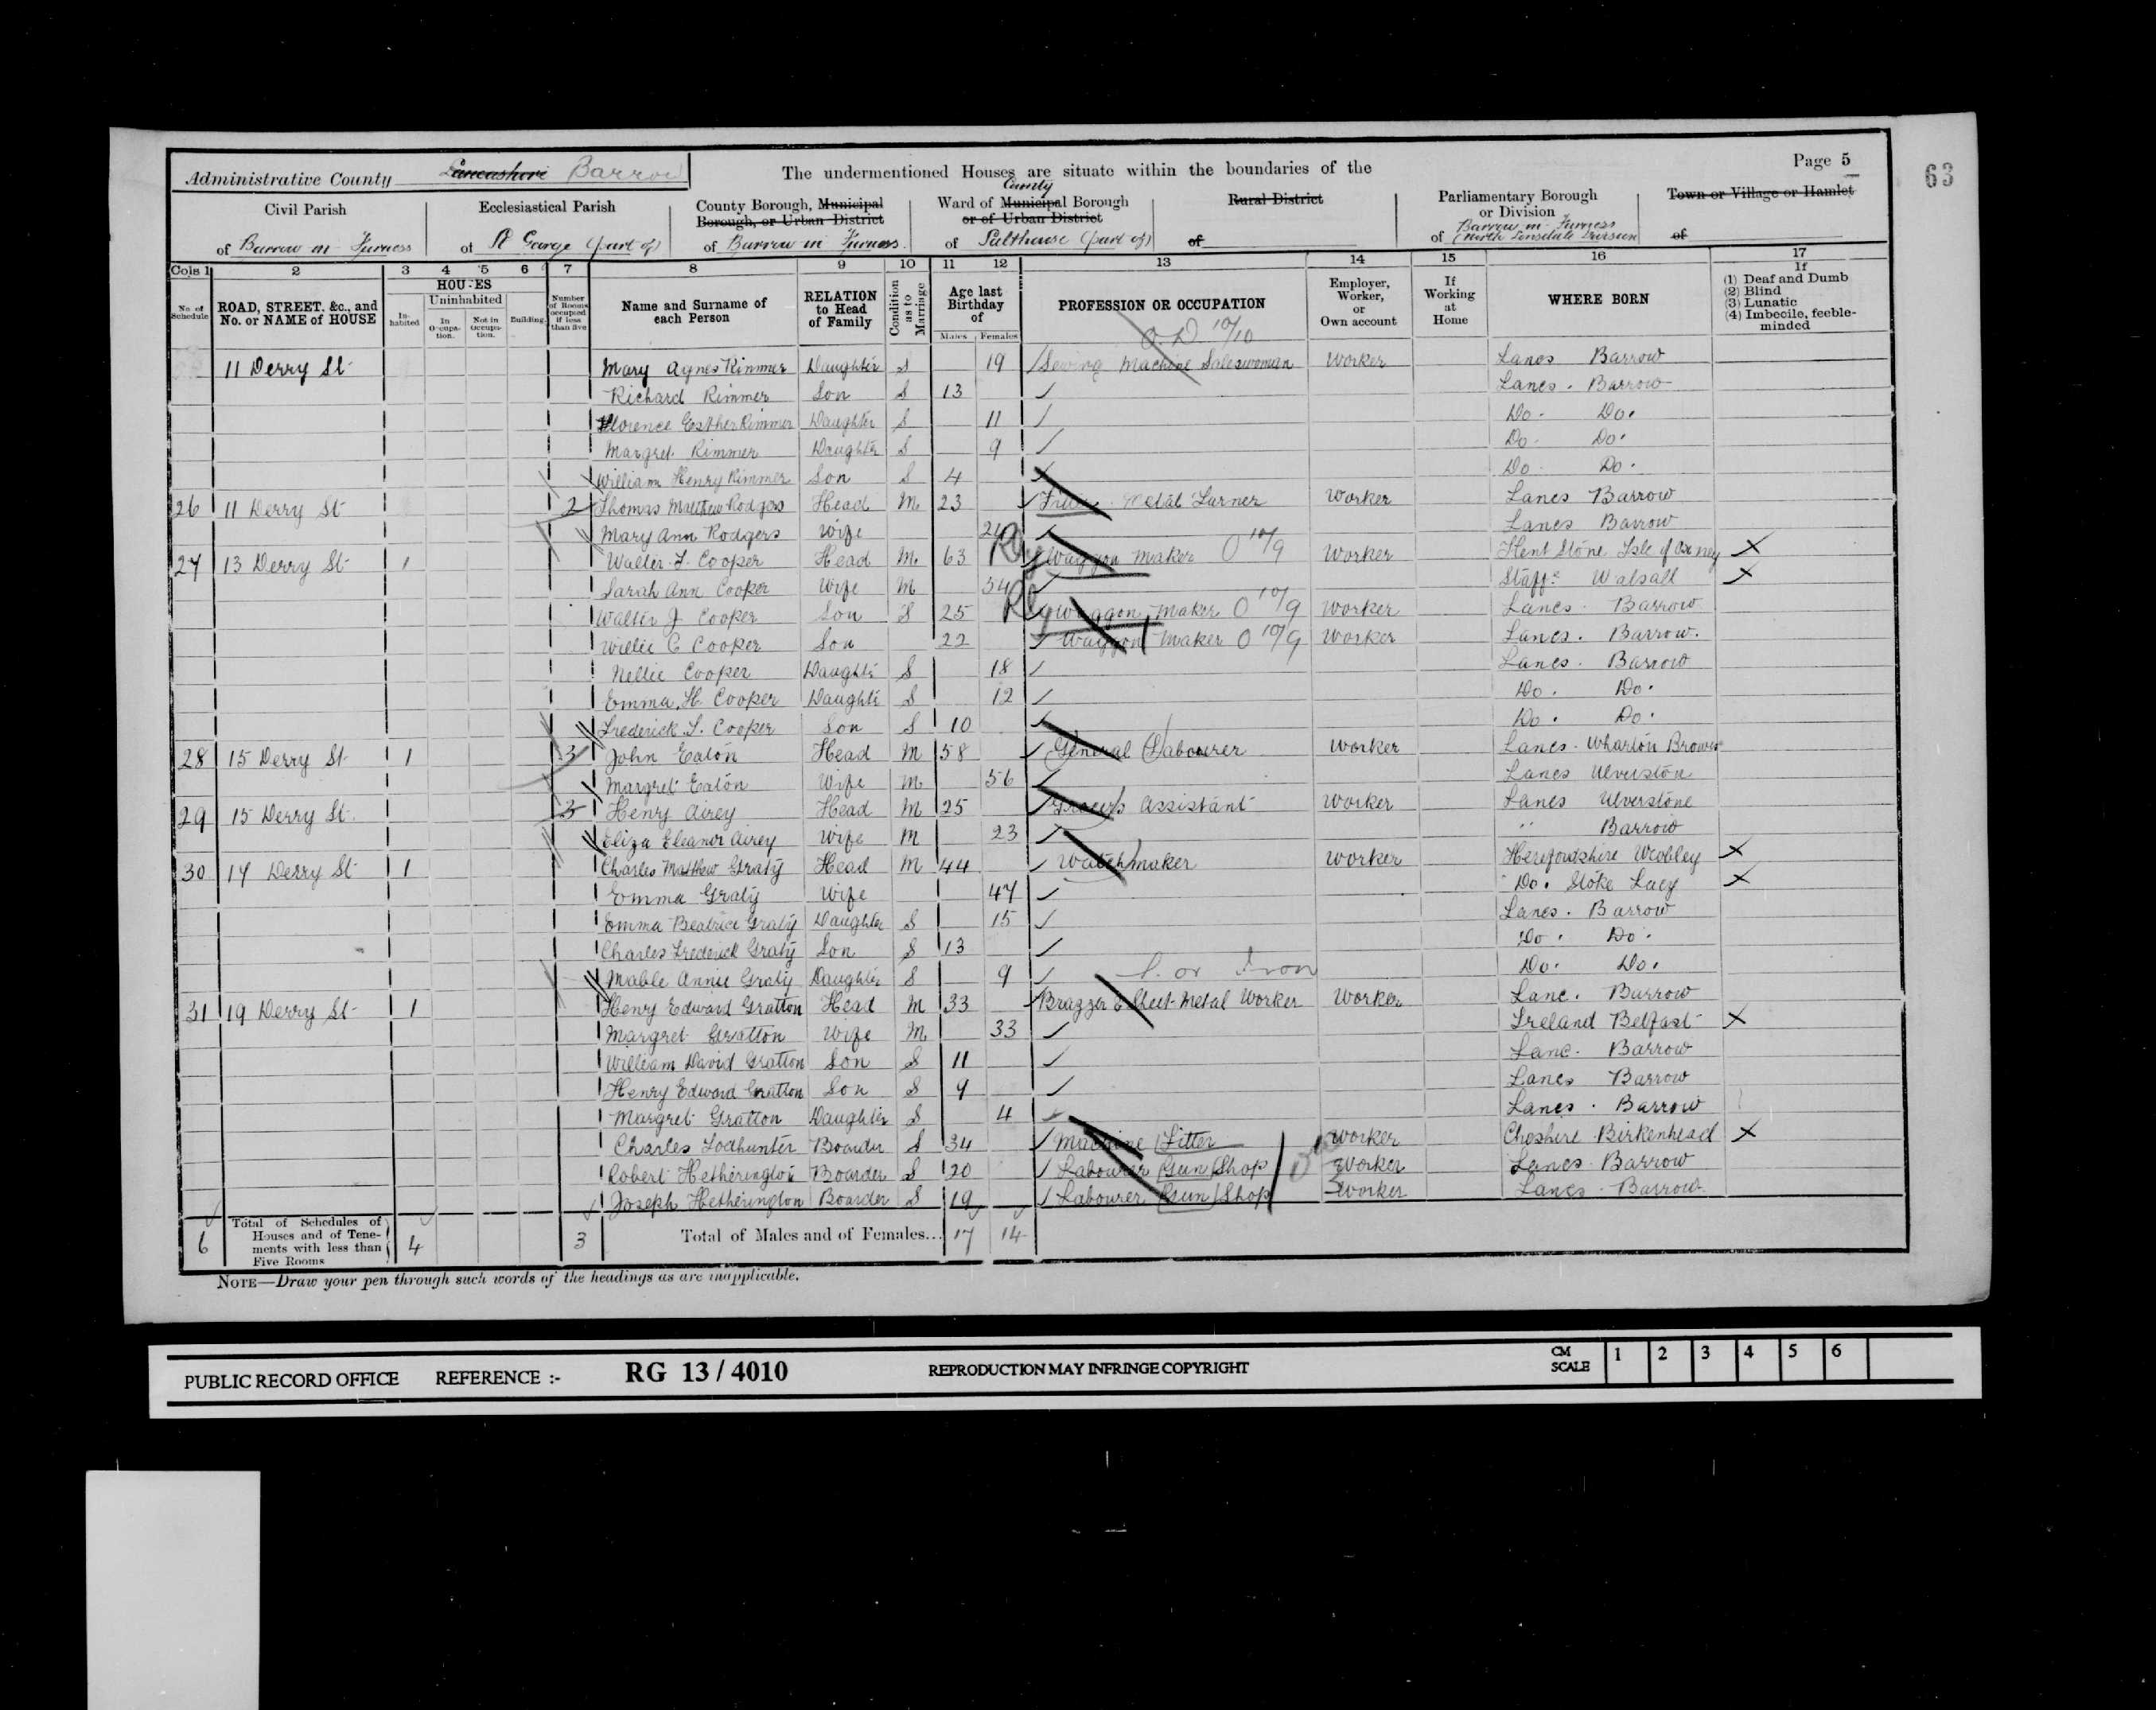 Page 5
63
Administrative County Lancashire Barrow
The undermentioned Houses are situate within the boundaries of the
Civil Parish
of Barrow in Furness
Ecclesiastical Parish
of St George (part of)
County Borough, Municipal
Borough, or Urban District
of Barrow in Furness
County
Ward of Municipal Borough
or of Urban District
of Salthouse (part of)
Rural District
of
Parliamentary Borough
or Division
of Barrow in Furness
(North Lonsdale Division
Town or Village or Hamlet
of
Cols 1 2 3 4 5 6 7 8 9 10 11 12 13 14 15 16 17
No. of Schedule
ROAD, STREET, &c., and No. or NAME of HOUSE
HOUSES
Inhabited
Uninhabited
In Occupation.
Not in Occupation.
Building.
Number of Rooms occupied if less than five
Name and Surname of each Person
RELATION to Head of Family
Condition as to Marriage
Age last Birthday of
Males Females
PROFESSION OR OCCUPATION
Employer, Worker, or Own account
If Working at Home
WHERE BORN
If
(1) Deaf and Dumb
(2) Blind
(3) Lunatic
(4) Imbecile, feeble-minded
11 Derry St Mary Agnes Rimmer Daughter S 19 Sewing Machine Saleswoman Worker Lancs Barrow
Richard Rimmer Son S 13 Lancs. Barrow
Florence Esther Rimmer Daughter S 11 Do. Do.
Margret Rimmer Daughter S 9 Do. Do.
William Henry Rimmer Son S 4 Do. Do.
26 11 Derry St 2 Thomas Matthew Rodgers Head M 23 Metal Turner Worker Lancs Barrow
Mary Ann Rodgers Wife 21 Lancs Barrow
27 13 Derry St 1 Walter F. Cooper Head M. 63 Rly Waggon Maker O 10/9 Worker Kent Stone Isle of Oxney X
Sarah Ann Cooper Wife M 54 Staffs Walsall X
Walter J Cooper Son S 25 Rly Waggon Maker O 10/9 Worker Lancs. Barrow
Willie C Cooper Son 22 Waggon Maker O 10/9 Worker Lancs. Barrow.
Nellie Cooper Daughtr S 18 Lancs. Barrow
Emma. H. Cooper Daughtr S 12 Do. Do.
Frederick T. Cooper Son S 10 Do. Do.
28 15 Derry St 1 3 John Eaton Head M 58 General Labourer Worker Lancs. Wharton
Margret Eaton Wife M 56 Lancs Ulverston
29 15 Derry St. 3 Henry Airey Head M 25 Grocer's Assistant Worker Lancs Ulverstone
Eliza Eleanor Airey Wife M 23 " Barrow
30 17 Derry St 1 Charles Matthew Graty Head M 44 Watchmaker Worker Herefordshire Weobley X
Emma Graty Wife 47 Do. Stoke Lacy X
Emma Beatrice Graty Daughter S 15 Lancs. Barrow
Charles Frederick Graty Son S 13 Do. Do.
Mable Annie Graty Daughter S 9 Do. Do.
31 19 Derry St 1 Henry Edward Gratton Head M 33 Brazzer & Sheet-Metal Worker Worker Lanc. Barrow
Margret Gratton Wife M 33 Ireland Belfast X
William David Gratton Son S 11 Lanc. Barrow
Henry Edward Gratton Son S 9 Lancs Barrow
Margret Gratton Daughter S 4 Lancs. Barrow
Charles Todhunter Boarder S 34 Machine Fitter Worker Cheshire Birkenhead X
Robert Hetherington Boarder S 20 Labourer Gun Shop Worker Lancs Barrow
Joseph Hetherington Boarder S 19 Labourer Gun Shop Worker Lancs. Barrow
6 Total of Schedules of Houses and of Tenements with less than Five Rooms 4 3 Total of Males and of Females... 17 14
NOTE—Draw your pen through such words of the headings as are inapplicable.
PUBLIC RECORD OFFICE REFERENCE :- RG 13 / 4010 REPRODUCTION MAY INFRINGE COPYRIGHT CM SCALE 1 2 3 4 5 6